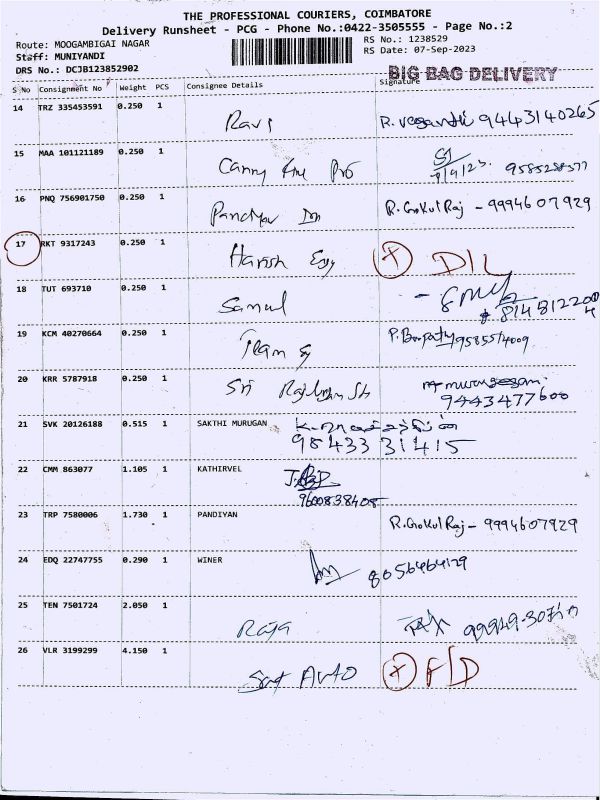 THE PROFESSIONAL COURIERS, COIMBATORE
Delivery Runsheet - PCG - Phone No.:0422-3505555 - Page No.:2
Route: MOOGAMBIGAI NAGAR RS No.: 1238529
Staff: MUNIYANDI RS Date: 07-Sep-2023
DRS No.: DCJB123852902
BIG BAG DELIVERY
S No Consignment No Weight PCS Consignee Details Signature
14 TRZ 335453591 0.250 1
Ravi 9443140265
15 MAA 101121189 0.250 1
16 PNQ 756901750 0.250 1
R. Gokul Raj - 9994607929
17 RKT 9317243 0.250 1
Harish
18 TUT 693710 0.250 1
19 KCM 40270664 0.250 1
20 KRR 5787918 0.250 1
Sri
9443477600
21 SVK 20126188 0.515 1 SAKTHI MURUGAN
98433 31415
22 CMM 863077 1.105 1 KATHIRVEL
9600838408
23 TRP 7580006 1.730 1 PANDIYAN
R. Gokul Raj - 9994607929
24 EDQ 22747755 0.290 1 WINER
25 TEN 7501724 2.050 1
Raja
26 VLR 3199299 4.150 1
AUTO